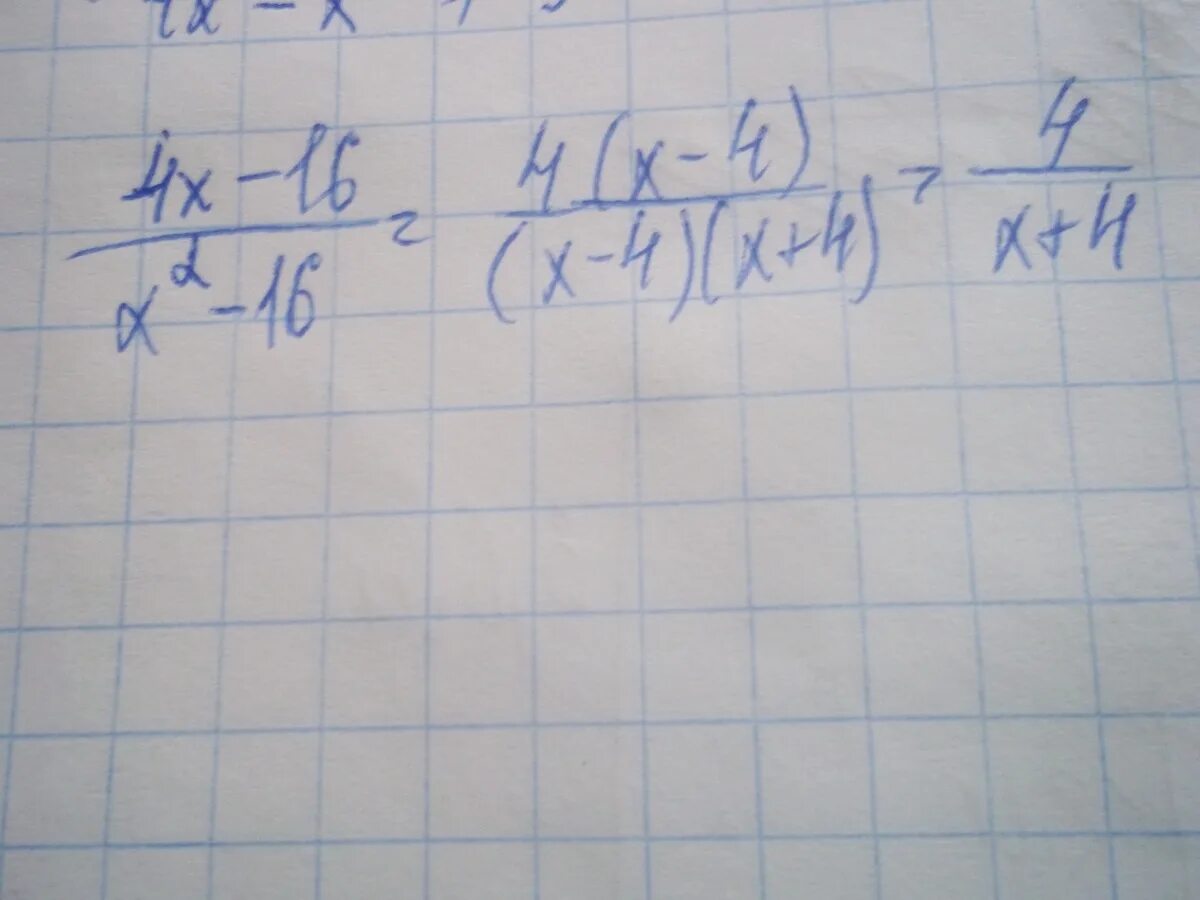 4x - x
4x - 16 / x² - 16 = 4(x - 4) / (x - 4)(x + 4) = 4 / x + 4